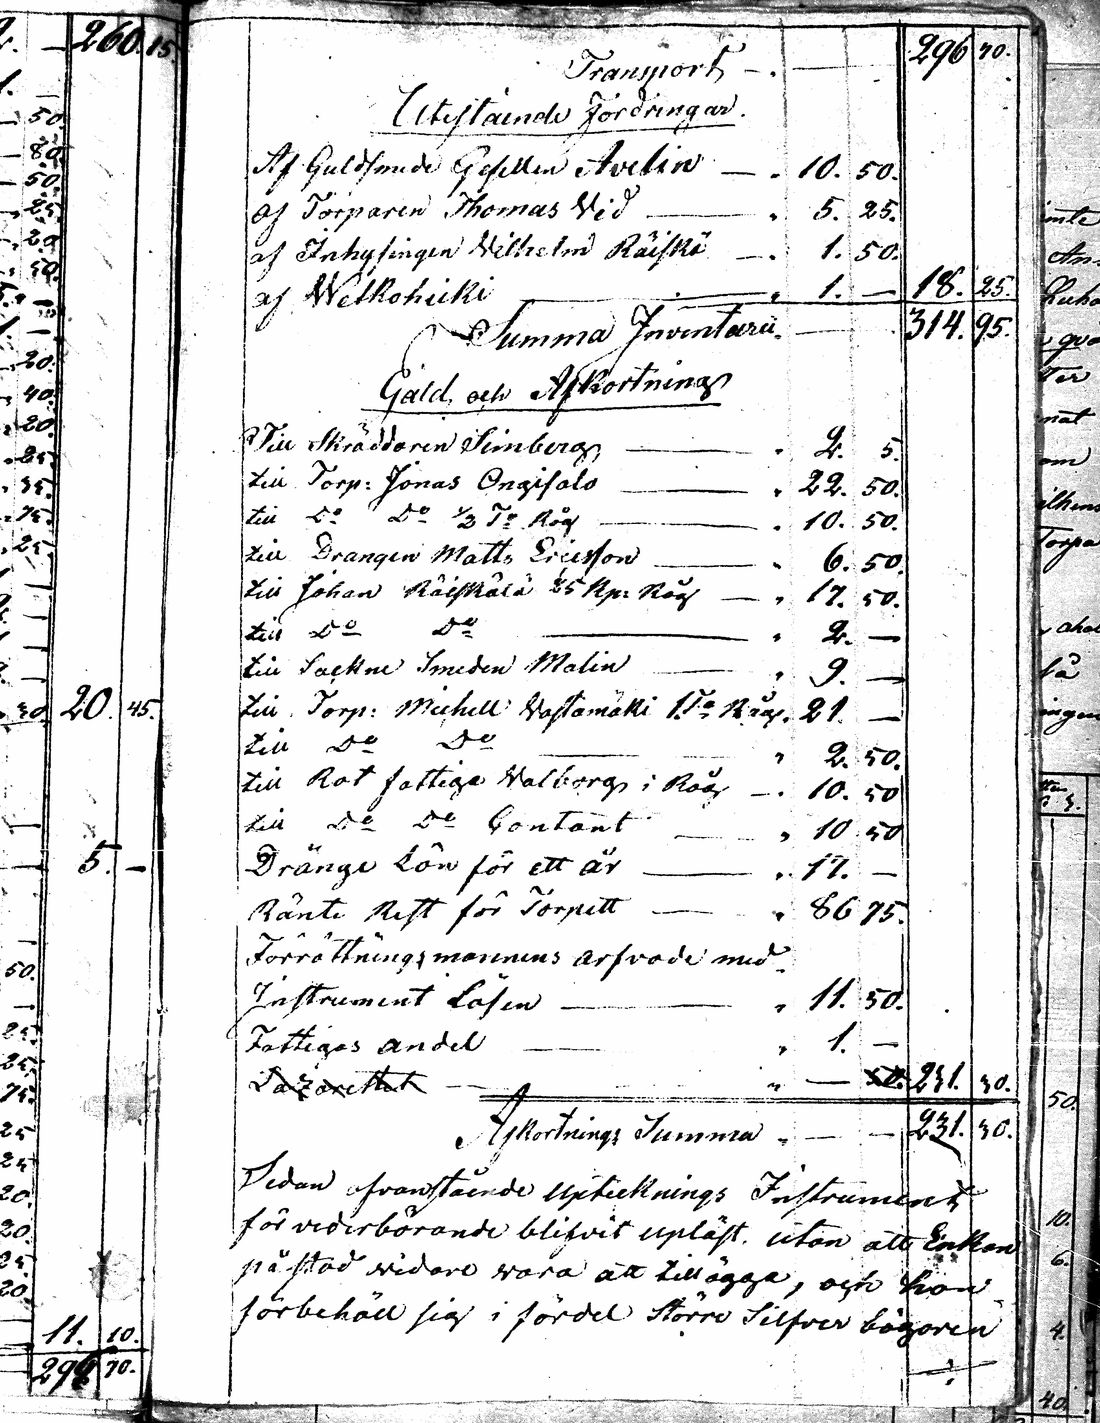 260. 15.
50.
80.
50.
25.
20.
50.
20.
40.
20.
25.
35.
75.
25.
30. 20. 45.
5. —
50.
25.
25.
75.
25
25
20.
20.
25
20.
11. 10.
296 70.
Transport — . — 296 70.
Utestående Fordringar.
Af Guldsmeds Gesellen Avelin — . 10. 50.
af Torparen Thomas Wid — " 5. 25.
af Inhysingen Wilhelm Räiskä — . 1. 50.
af Welkohuki — " 1. — 18. 25.
Summa Inventarii. — 314. 95.
Gäld och Afkortning
Till Skräddaren Simberg — " 2. 5.
till Torp: Jonas Ongisalo — " 22. 50.
till Do Do 1/2 Ta Råg — " 10. 50.
till Drängen Matts Ericsson — " 6. 50.
till Johan Räiskälä 25 Kp: Råg — " 17. 50.
till Do Do — " 2. —
till Sockne Smeden Malin — " 9. —
till Torp: Michell Wastamäki 1. Ta Råg. 21. —
till Do Do — " 2. 50.
till Rot fattiga Walborg i Råg — . 10. 50
till Do Do Contant — " 10 50
Dränge Lön för ett år — " 17. —
Ränte Rest för Torpett — " 86 75.
Förrättningsmannens arfvode med
Instrument Lösen — " 11. 50.
Fattigas andel — " 1. —
Lazarettet — " — 50. 231. 30.
Afkortnings Summa . — — 231. 30.
Sedan ofvanstående upteknings Instrument
för vederbörande blifvit upläst. utan att Enkan
påstod vidare vara att tillägga, och hon
förbehåll sig i fördel större Silfver bägaren
50.
10.
6.
4.
40.